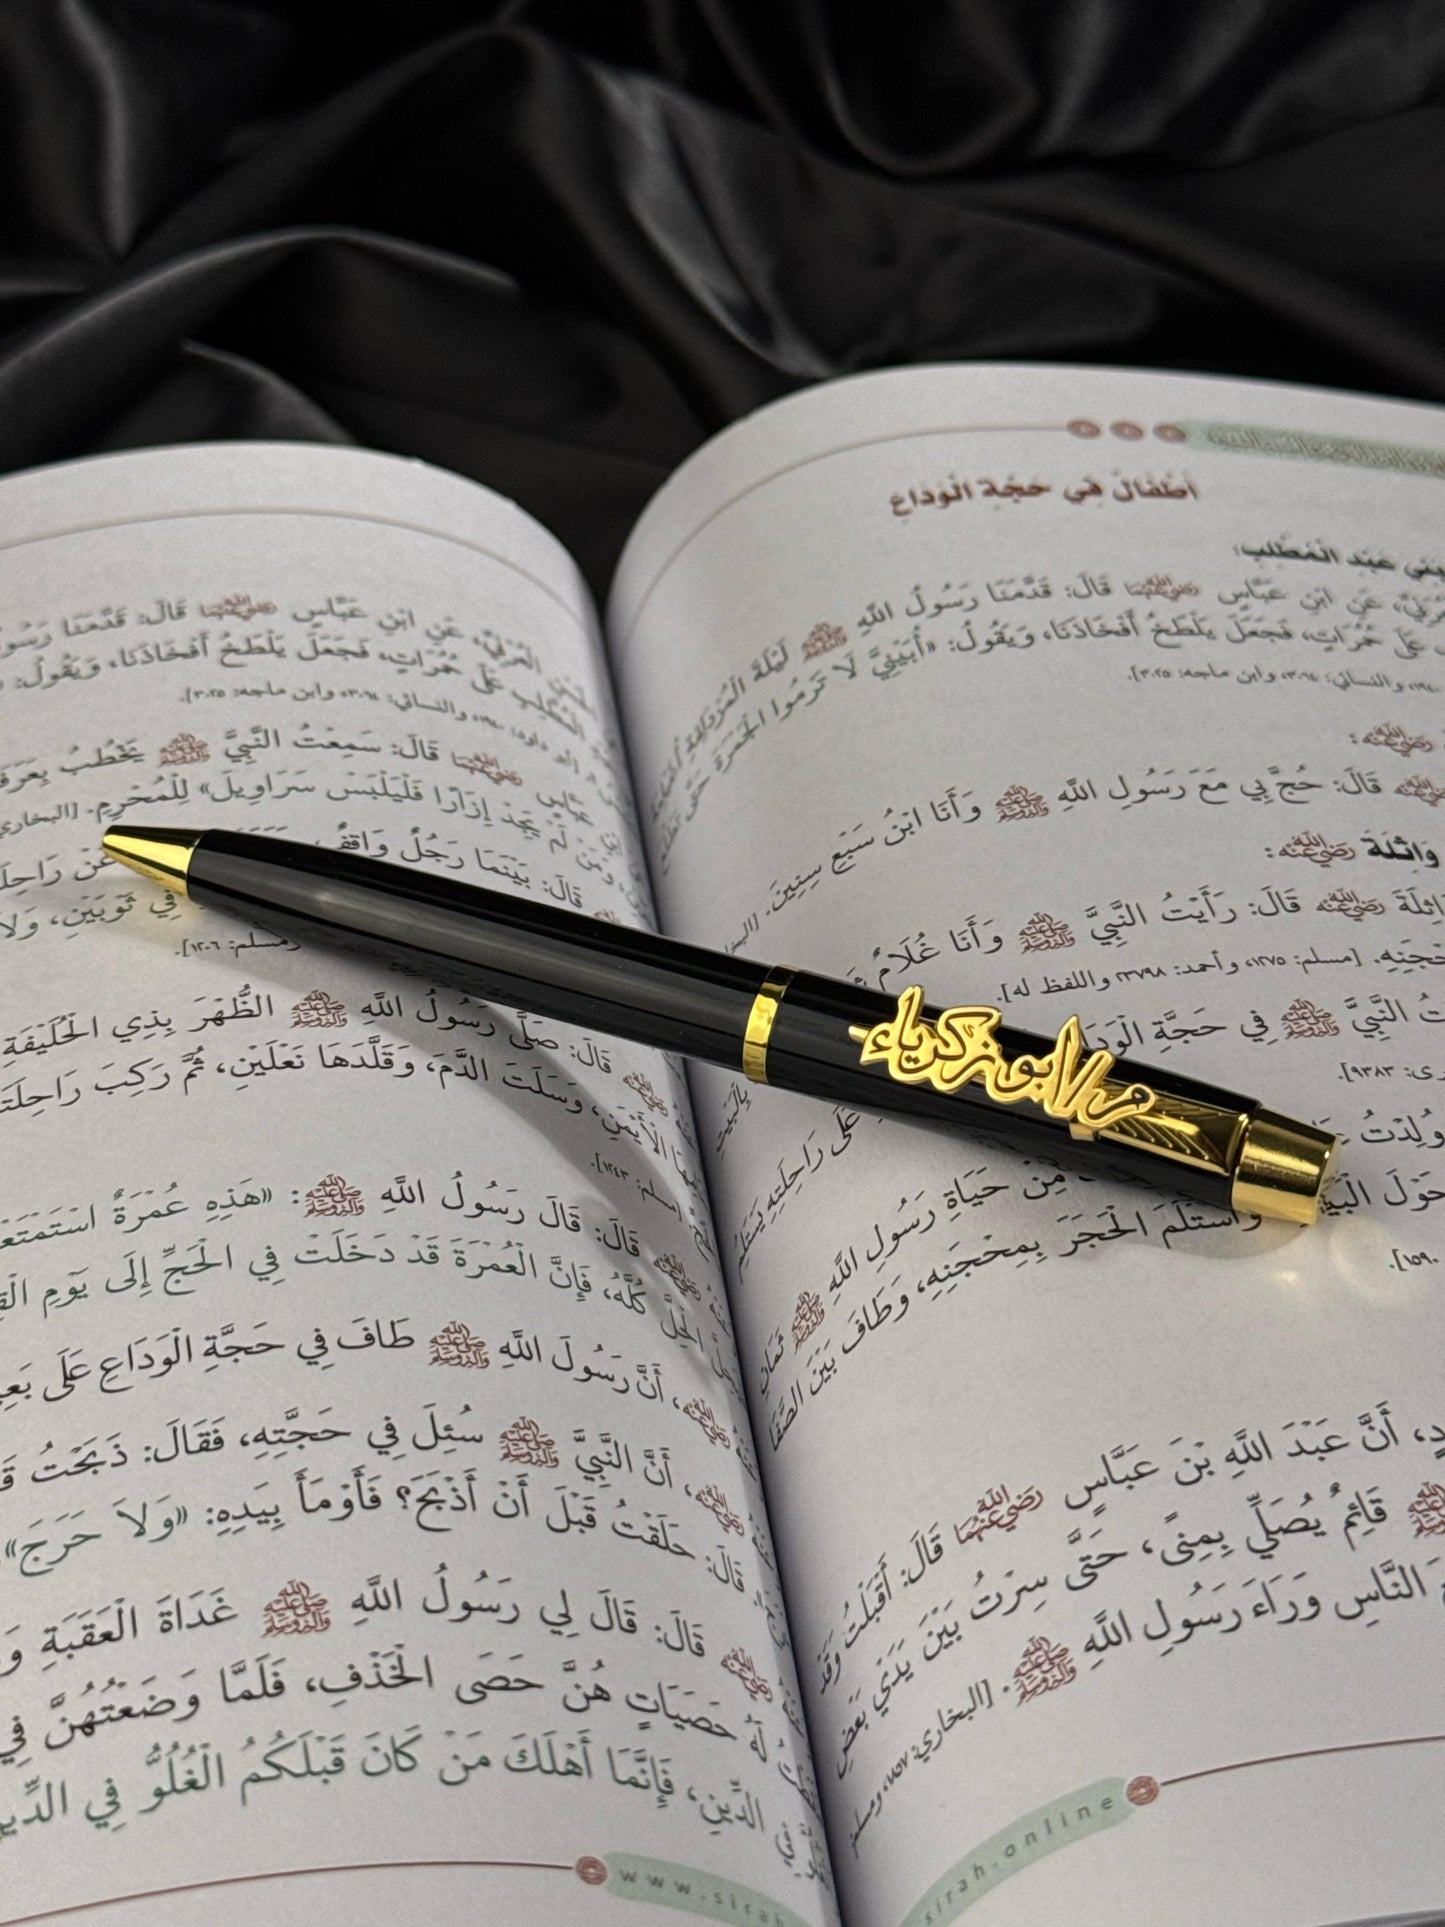 أطفال في حجة الوداع
بني عبد المطلب:
العرني، عن ابن عباس رضي الله عنهما قال: قدمنا رسول الله ﷺ ليلة المزدلفة
على حمرات، فجعل يلطخ أفخاذنا، ويقول: «أبيني لا ترموا الجمرة حتى تطلع
والنسائي: ٣٠٦٤، وابن ماجه: ٣٠٢٥].
رضي الله عنه:
رضي الله عنه قَالَ: حُجَّ بِي مَعَ رَسُولِ اللَّهِ ﷺ وَأَنَا ابْنُ سَبْعِ سِنِينَ. [البخاري
وَاثلَة رضي الله عنه:
رضي الله عنه قَالَ: رَأَيْتُ النَّبِيَّ ﷺ وَأَنَا غُلَامٌ
[مسلم: ١٢٧٥، وأحمد: ٢٣٧٩٨ واللفظ له].
النَّبِيَّ ﷺ فِي حَجَّةِ الْوَدَاع
٩٣٨٣].
وُلِدْتُ
مِنْ حَيَاةِ رَسُولِ اللَّهِ ﷺ ثَمَانِ
عَلَى رَاحِلَتِهِ يَسْتَلِمُ
حَوْلَ الْبَيْتِ
وَاسْتَلَمَ الْحَجَرَ بِمِحْجَنِهِ، وَطَافَ بَيْنَ الصَّفَا
١٥٩٠].
أَنَّ عَبْدَ اللَّهِ بْنَ عَبَّاسٍ رضي الله عنهما قَالَ: أَقْبَلْتُ وَقَدْ
ﷺ قَائِمٌ يُصَلِّي بِمِنًى، حَتَّى سِرْتُ بَيْنَ يَدَيْ بَعْضِ
النَّاسِ وَرَاءَ رَسُولِ اللَّهِ ﷺ. [البخاري: ١٨٥٧، ومسلم
sirah.online
العرني، عن ابن عباس رضي الله عنهما قال: قدمنا رسول
المطلب على حمرات، فجعل يلطخ أفخاذنا، ويقول:
والنسائي: ٣٠٦٤، وابن ماجه: ٣٠٢٥].
عباس رضي الله عنهما قال: سَمِعْتُ النَّبِيَّ ﷺ يَخْطُبُ بِعَرَفَ
وَمَنْ لَمْ يَجِدْ إِزَارًا فَلْيَلْبَسْ سَرَاوِيلَ» لِلْمُحْرِمِ. [البخاري
قَالَ: بَيْنَمَا رَجُلٌ وَاقِفٌ
عَنْ رَاحِلَ
فِي ثَوْبَيْنِ، وَلَا
ومسلم: ١٢٠٦].
قَالَ: صَلَّى رَسُولُ اللَّهِ ﷺ الظُّهْرَ بِذِي الْحُلَيْفَةِ
الْأَيْمَنِ، وَسَلَتَ الدَّمَ، وَقَلَّدَهَا نَعْلَيْنِ، ثُمَّ رَكِبَ رَاحِلَتَ
[مسلم: ١٢٤٣].
رضي الله عنه قَالَ: قَالَ رَسُولُ اللَّهِ ﷺ: «هَذِهِ عُمْرَةٌ اسْتَمْتَعْ
الْحِلَّ كُلَّهُ، فَإِنَّ الْعُمْرَةَ قَدْ دَخَلَتْ فِي الْحَجِّ إِلَى يَوْمِ
رضي الله عنه، أَنَّ رَسُولَ اللَّهِ ﷺ طَافَ فِي حَجَّةِ الْوَدَاعِ عَلَى بَعِ
رضي الله عنه، أَنَّ النَّبِيَّ ﷺ سُئِلَ فِي حَجَّتِهِ، فَقَالَ: ذَبَحْتُ
قَالَ: حَلَقْتُ قَبْلَ أَنْ أَذْبَحَ؟ فَأَوْمَأَ بِيَدِهِ: «وَلَا حَرَجَ»
رضي الله عنه قَالَ: قَالَ لِي رَسُولُ اللَّهِ ﷺ غَدَاةَ الْعَقَبَةِ
لَهُ حَصَيَاتٍ هُنَّ حَصَى الْخَذْفِ، فَلَمَّا وَضَعْتُهُنَّ فِي
الدِّينِ، فَإِنَّمَا أَهْلَكَ مَنْ كَانَ قَبْلَكُمُ الْغُلُوُّ فِي الدِّين
www.sirah
ابو زكرياء